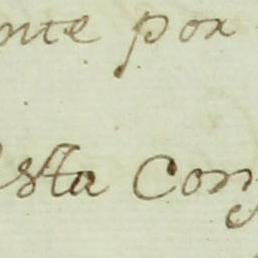 nte por
sta Con